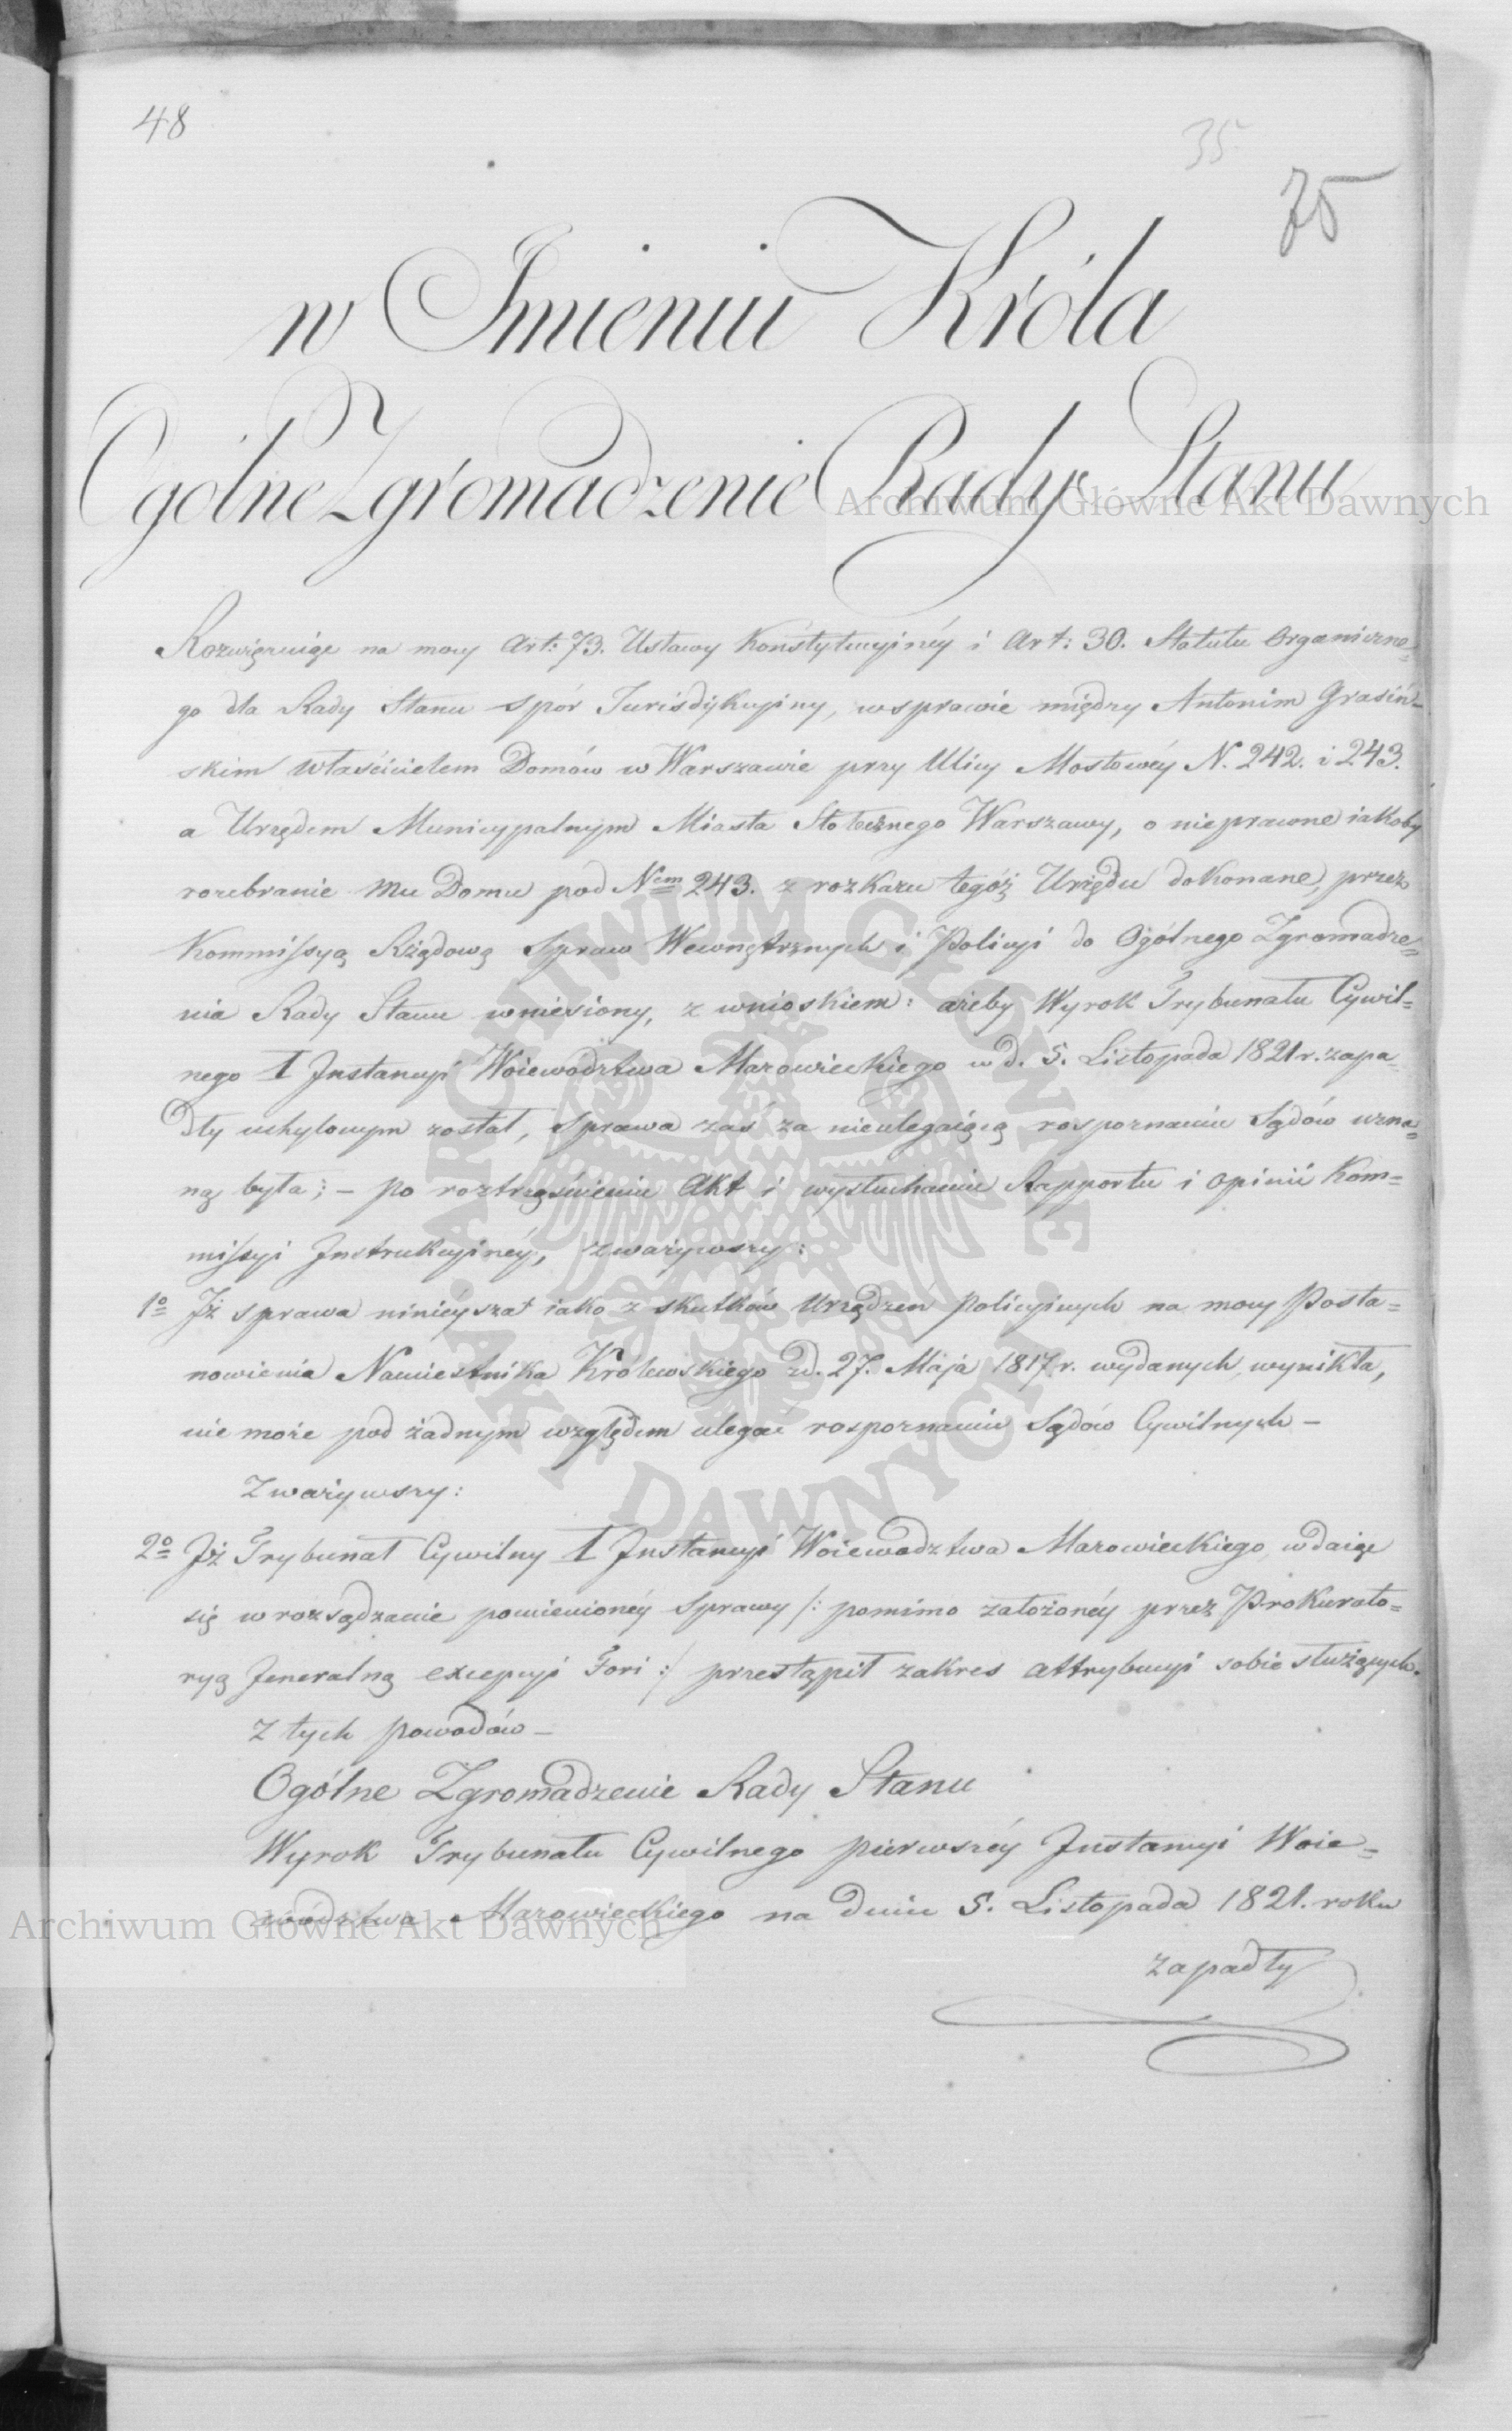 48
35
75
w Imieniu Króla
Ogólne Zgromadzenie Rady Stanu
Archiwum Główne Akt Dawnych
Rozwięzuiąc na mocy Art: 73. Ustawy Konstytucyinéy i Art: 30. Statutu Organiczne=
go dla Rady Stanu spór Jurisdykcyiny, w sprawie między Antonim Grasiń=
skim właścicielem Domów w Warszawie przy Ulicy Mostowéy N. 242. i 243.
a Urzędem Municypalnym Miasta Stołecznego Warszawy, o nieprawne iakoby
rozebranie mu Domu pod Nem 243. z rozkazu tegóż Urzędu dokonane, przez
Kommissyą Rządową Spraw Wewnętrznych i Policyi do Ogólnego Zgromadze=
nia Rady Stanu wniesiony, z wnioskiem: ażeby Wyrok Trybunału Cywil=
nego 1 Instancyi Woiewództwa Mazowieckiego w d. 5. Listopada 1821 r. zapa=
dły uchylonym został, sprawa zaś za nieulegaiącą rospoznaniu Sądów uzna=
ną była; – po roztrząśnieniu Akt i wysłuchaniu Rapportu i opinii Kom=
missyi Instrukcyinéy, zważywszy:
1o Iż sprawa ninieysza iako z skutków Urządzeń policyinych na mocy Posta=
nowienia Namiestnika Królewskiego z d. 27. Maja 1817 r. wydanych, wynikła,
nie może pod żadnym względem ulegać rospoznaniu Sądów Cywilnych –
Zważywszy:
2o Iż Trybunał Cywilny 1 Instancyi Woiewodztwa Mazowieckiego wdaiąc
się w rozsądzanie pomienionéy sprawy /: pomimo założonéy przez Prokurato=
ryą Jeneralną excepcyi Fori :/ przestąpił zakres attrybucyi sobie służących.
Z tych powodów –
Ogólne Zgromadzenie Rady Stanu
Wyrok Trybunału Cywilnego pierwszéy Instancyi Woie=
wództwa Mazowieckiego na dniu 5. Listopada 1821. roku
Archiwum Główne Akt Dawnych
zapadły
ARCHIWUM GŁÓWNE
AKT DAWNYCH